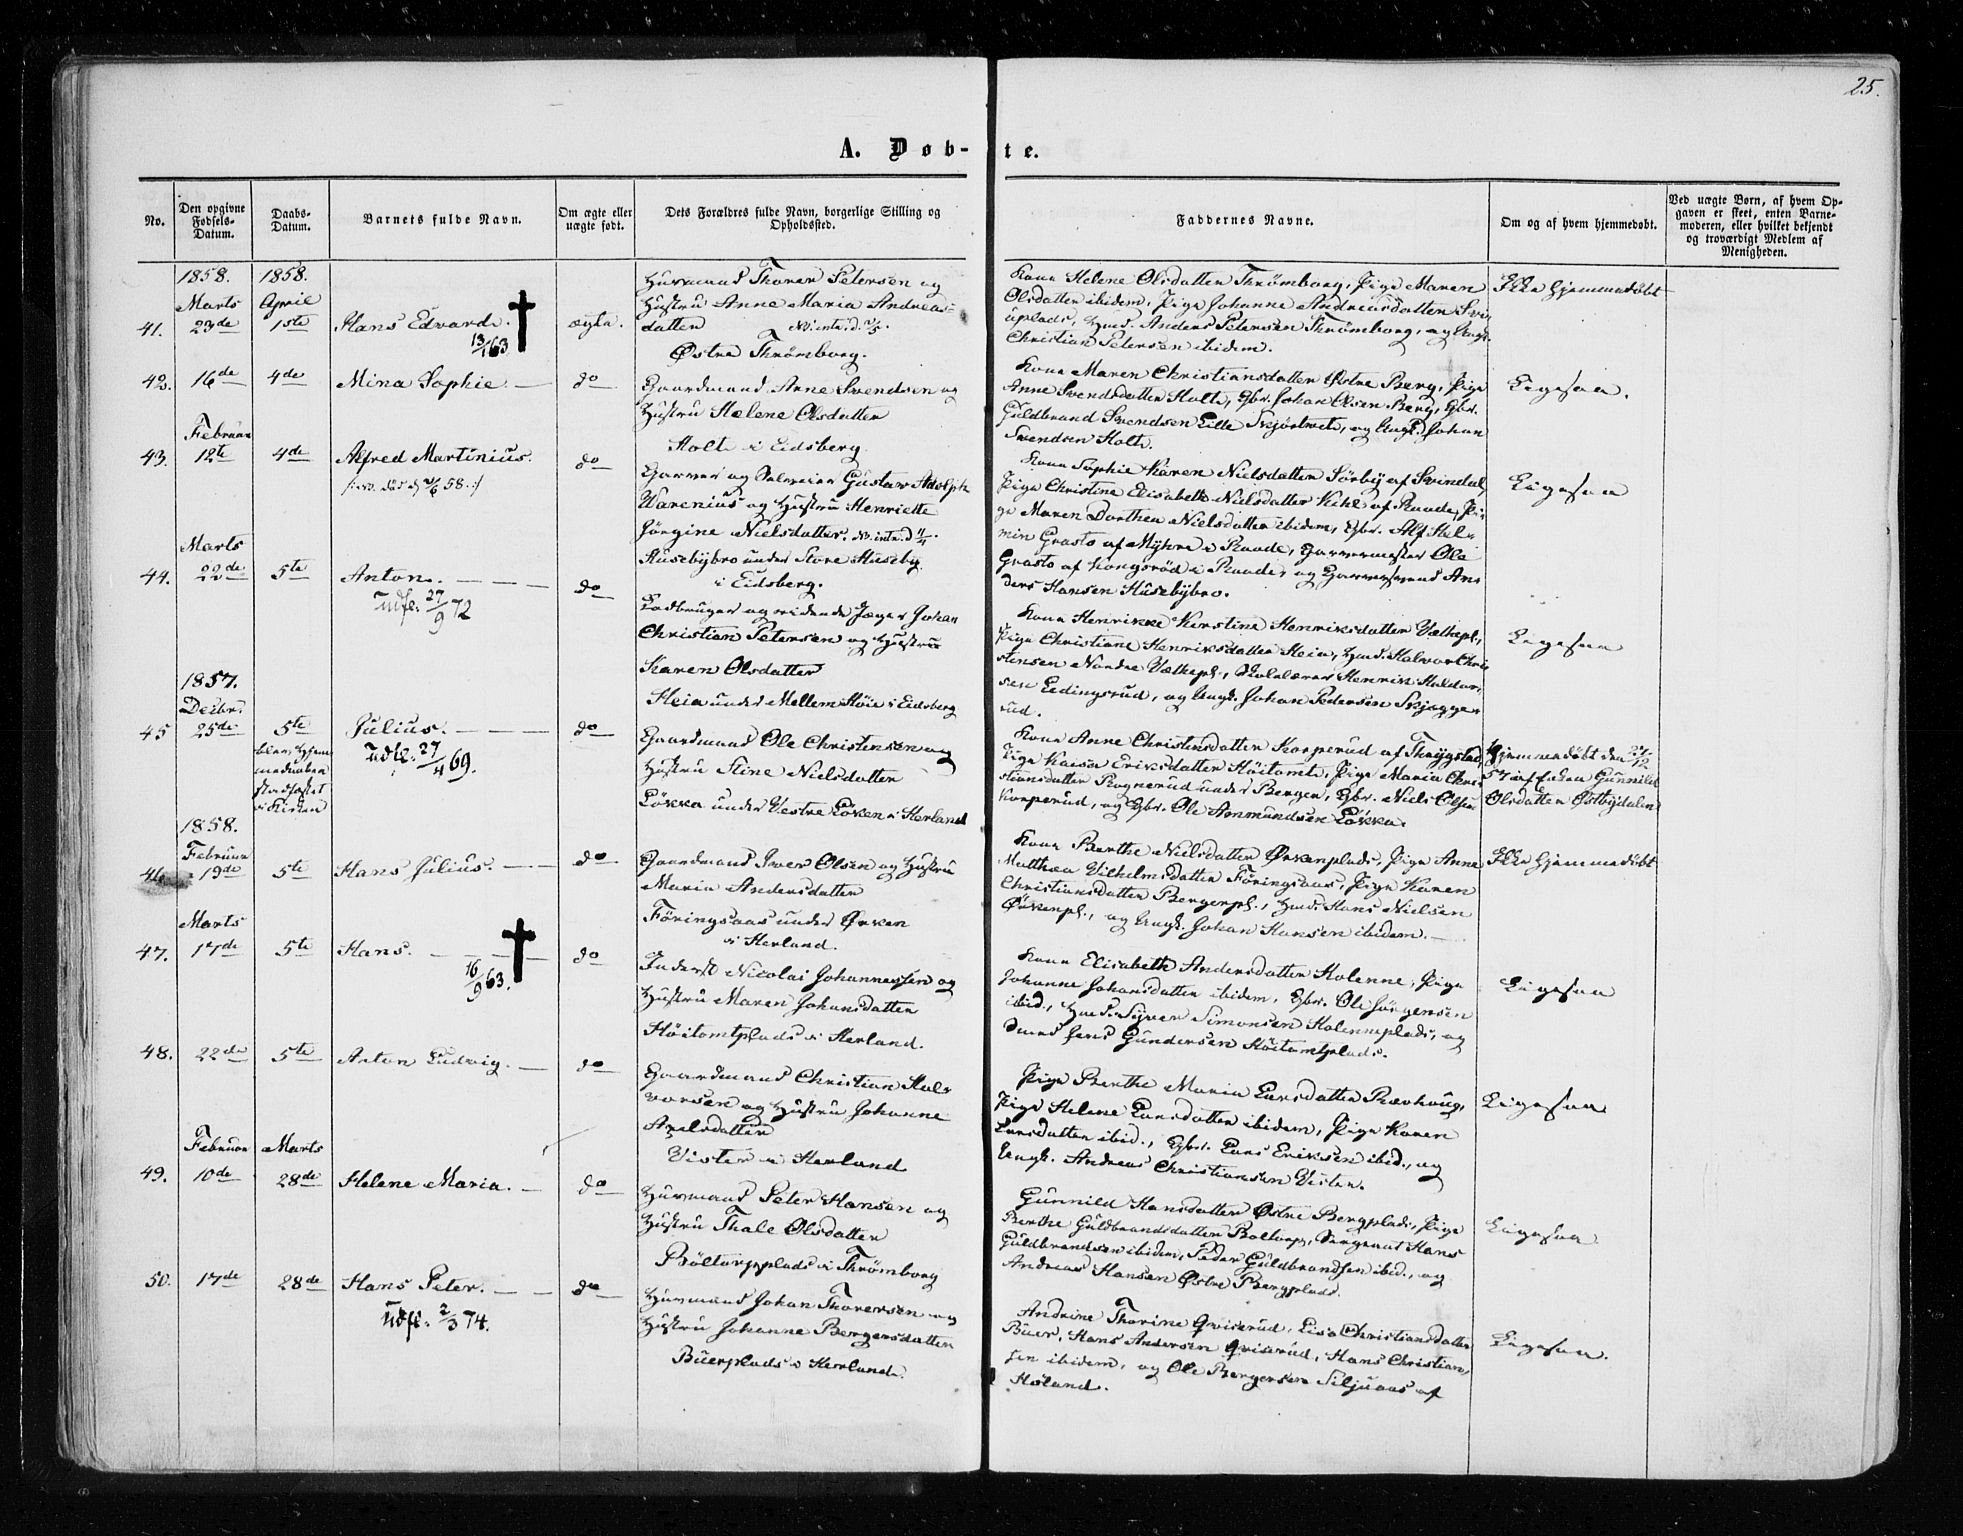 25.
A. Døb-te.
No.
Den opgivne Fødsels-Datum.
Daabs-Datum.
Barnets fulde Navn.
Om ægte eller uægte født.
Dets Forældres fulde Navn, borgerlige Stilling og Opholdssted.
Faddernes Navne.
Om og af hvem hjemmedøbt.
Ved uægte Børn, af hvem Opgaven er skeet, enten Barnemoderen, eller hvilket bekjendt og troværdigt Medlem af Menigheden.
1858. 1858.
Marts April
41. 23de 1ste Hans Edvard. ægte.
13/1 63
Huusmand Thorer Petersen og
Hustru Anne Maria Andreas-
datten
Østre Thrømborg.
Kona Helene Olsdatten Thrømborg, Pige Maren
Olsdatten ibidem, Pige Johanne Andreasdatten
plads, Huusm. Anders Petersen Thrømborg, og Ungk.
Christian Petersen ibidem.
Ikke hjemmedøbt
42. 16de 4de Mina Sophie. do
Gaardmand Arne Svendsen og
Hustru Helene Olsdatten
Holt i Eidsberg.
Kona Maren Christiansdatten Østre Berg, Pige
Anne Svendsdatten Holt, Gbr. Johan Olsen Berg, Gbr.
Guldbrand Svendsen Lille og Ungk. Johan
Svendsen Holt.
Ligesaa.
Februar
43. 12te 4de Alfred Martinius. do
58.
Garver og Gustav Adolph
Warenius og Hustru Henriette
Jørgine Nielsdatter.
Husebybro under Store Huseby
i Eidsberg.
Kona Sophie Karen Nielsdatten Sørby af Svindal,
Pige Christine Elisabeth Nielsdatter af Raade, Pi-
ge Maren Dorthea Nielsdatten ibidem, Gbr. Alf
Grasto af Myhre i Raade, Garvermester Ole
Grasto af Kongsrød i Raade, og An-
ders Hansen Husebybro.
Ligesaa
Marts
44. 22de 5te Anton. do
Udfl. 27/9 72
og ridende Jæger Johan
Christian Petersen og Hustru
Karen Olsdatter
Heia under Mellem Høie i Eidsberg
Kona Henrikke Kirstine Henriksdatten
Pige Christiane Henriksdatten Heia, Huusm. Halvor Chri-
stensen Nordre Skolelærer Henrik Haldor-
sen og Ungk. Johan Pedersen Skjøgge-
rud.
Ligesaa
1857.
Decbr.
45 25de 5te Julius. do
Udfl. 27/4 69.
blev hjem-
medaaben
stadfæstet
i Kirken
Gaardmand Ole Christensen og
Hustru Stine Nielsdatten
Løkka under Vestre Løken i Herland
Kona Anne Christensdatten Korperud af Thrygstad,
Pige Kaisa Eriksdatten Høitomt, Pige Maria Chri-
stiansdatten Rognerud under Bergen, Gbr. Niels Olsen
Korperud, og Gbr. Ole Aamundsen Løkka.
Hjemmedøbt den 27/12
57 af Enken Gunnild
Olsdatten Østbydalen
1858.
Februar
46. 19de 5te Hans Julius. do
Gaardmand Iver Olsen og Hustru
Maria Andersdatter
Føringsaas under Ørken
i Herland.
Kona Berthe Nielsdatter Ørkenplads, Pige Anne
Matthea Vilhelmsdatter Føringsaas, Pige Karen
Christiansdatten Bergerpl., Huusm. Hans Nielsen
Ørkenpl., og Ungk. Johan Hansen ibidem.
Ikke hjemmedøbt
Marts
47. 17de 5te Hans. do
16/9 63.
Inderst Nicolai Johannessen og
Hustru Maren Johansdatten
Høitomtplads i Herland.
Kona Elisabeth Andersdatten Holenne, Pige
Johanne Johansdatten ibidem, Gbr. Ole Jørgensen
ibid., Huusm. Syver Simonsen Holenneplads, og
Jens Gundersen Høitomtplads.
Ligesaa
48. 22de 5te Anton Ludvig. do
Gaardmand Christian Hal-
vorsen og Hustru Johanne
Axelsdatten
Vister i Herland
Pige Berthe Maria Larsdatten Ravhoug,
Pige Helene Larsdatten ibidem, Pige Karen
Larsdatten ibid., Gbr. Lars Eriksen ibid., og
Ungk. Andreas Christiansen Vister.
Ligesaa
Februar Marts
49. 10de 28de Helene Maria. do
Huusmand Peter Hansen og
Hustru Thale Olsdatten
Böltorpplads i Thrømborg
Gunnild Hansdatten Østre Bergplads, Pige
Berthe Guldbrandsdatten Boltorp, Sergeant Hans
Guldbrandsen ibidem, Peder Guldbrandsen ibid., og
Andreas Hansen Østre Bergplads.
Ligesaa
50. 17de 28de Hans Peter. do
Udfl. 2/3 74.
Huusmand Johan Thorersen og
Hustru Johanne Bergersdatten
Buerplads i Herland.
Andrine Thorine Qviserud, Lisa Christiansdatten
Buer, Hans Andersen Qviserud, Hans Christian-
sen ibidem, og Ole Bergersen Siljuaas af
Høland.
Ligesaa.